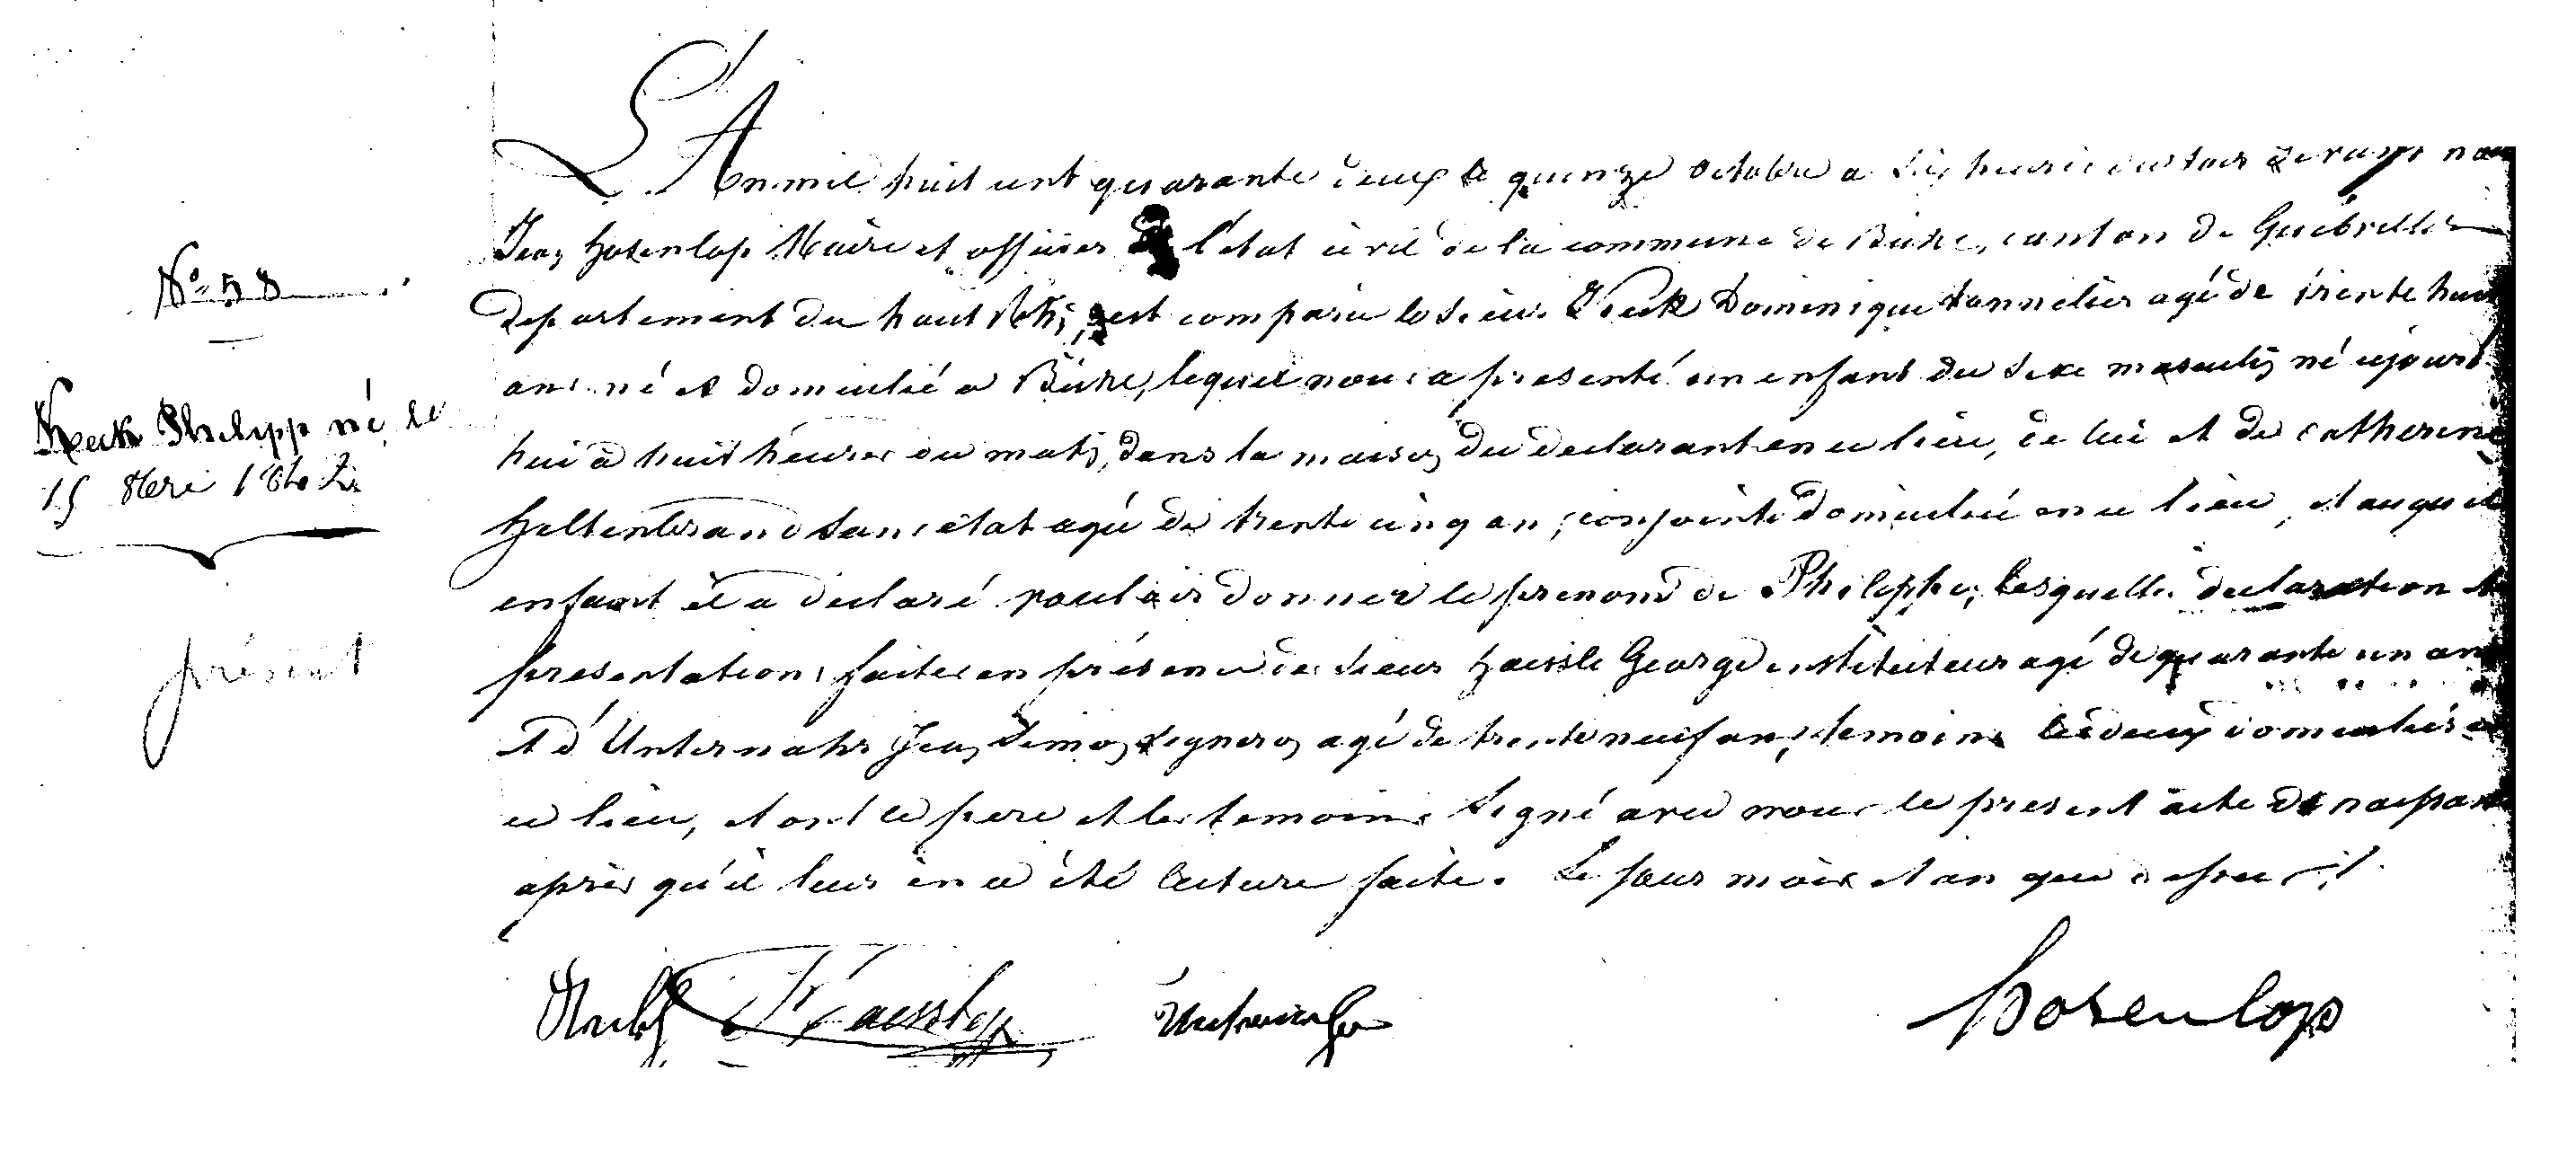 L'An mil huit cent quarante deux le quinze octobre a six heures du soir devant nous
Jean Hosenlop Maire et officier de l'état civil de la commune de Bühl, canton de Guebviller
departement du haut Rhin, est comparu le sieur Keck Dominique tonnelier agé de trente huit
ans né et domicilié a Bühl, lequel nous a presenté un enfant du sexe masculin né cejourd
hui à huit heures du matin, dans la maison du declarant en ce lieu, de lui et de Catherine
Heltenbrand sans état agé de trente cinq ans, conjointe domicilié en ce lieu, et auquel
enfant il a declaré vouloir donner le prenom de Philippe, lesquelles declaration et
presentation faites en présence de sieur Haessle George instituteur agé de quarante un ans
et d'Unternahr Jean Simon vigneron agé de trente neuf ans, temoins les deux domiciliés en
ce lieu, et ont le pere et les temoins signé avec nous le present acte de naissance
après qu'il leur en a été lecture faite. Le jour mois et an que dessus.
N° 58
Keck Philipp né le
15 8bre 1842
présent
Haessle
Hosenlop